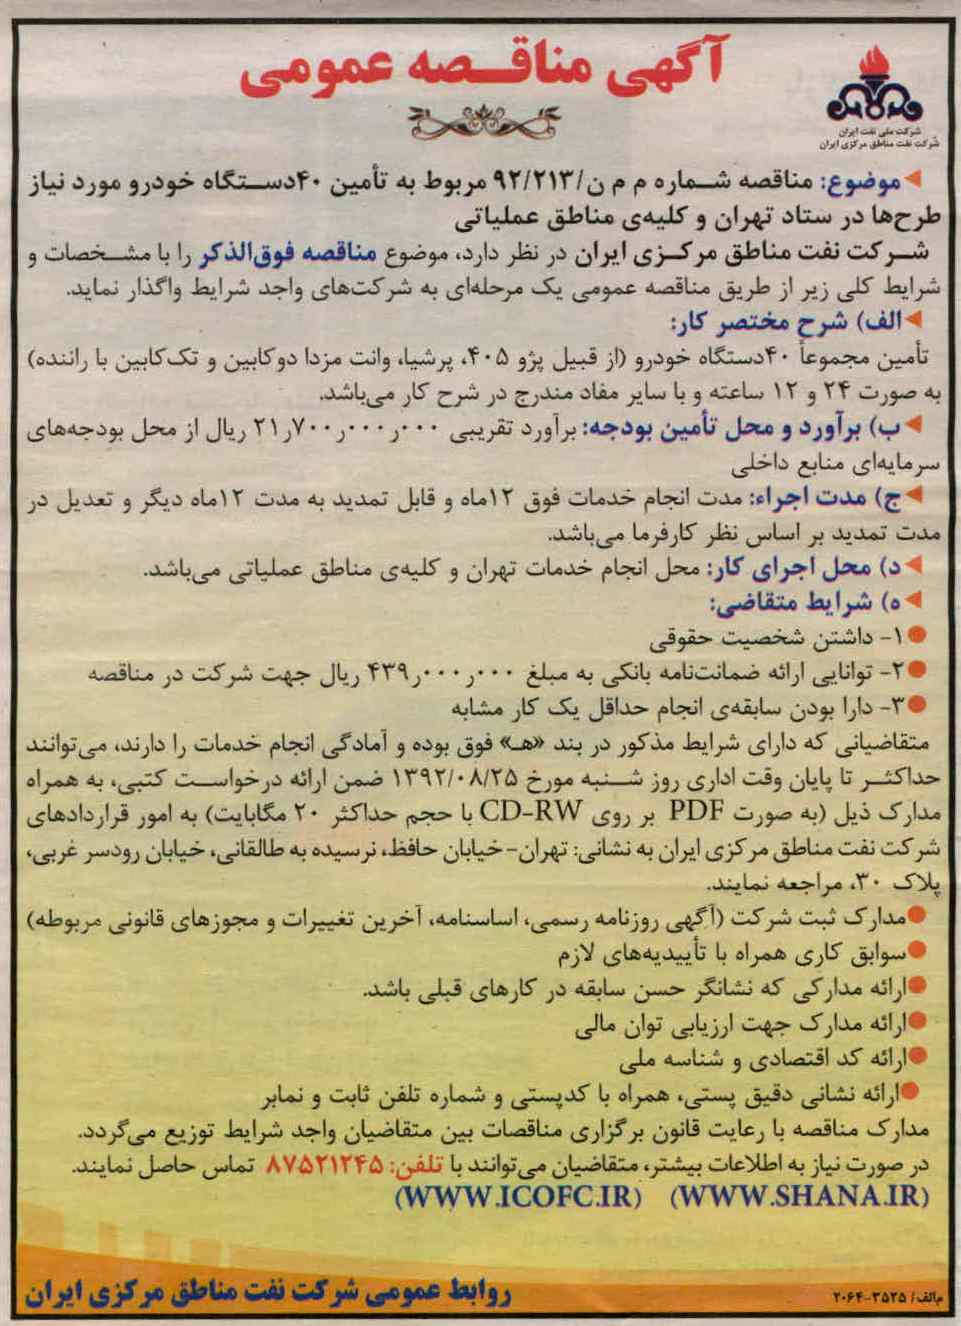 آگهی مناقـصه عمومی
شرکت ملی نفت ایران
شرکت نفت مناطق مرکزی ایران
موضوع: مناقصه شـماره م م ن/۹۲/۲۱۳ مربوط به تأمین ۴۰دسـتگاه خودرو مورد نیاز
طرح‌ها در ستاد تهران و کلیه‌ی مناطق عملیاتی
شـرکت نفت مناطق مرکـزی ایران در نظر دارد، موضوع مناقصه فوق‌الذکر را با مشـخصات و
شرایط کلی زیر از طریق مناقصه عمومی یک مرحله‌ای به شرکت‌های واجد شرایط واگذار نماید.
الف) شرح مختصر کار:
تأمین مجموعاً ۴۰دستگاه خودرو (از قبیل پژو ۴۰۵، پرشیا، وانت مزدا دوکابین و تک‌کابین با راننده)
به صورت ۲۴ و ۱۲ ساعته و با سایر مفاد مندرج در شرح کار می‌باشد.
ب) برآورد و محل تأمین بودجه: برآورد تقریبی ۲۱٫۷۰۰٫۰۰۰٫۰۰۰ ریال از محل بودجه‌های
سرمایه‌ای منابع داخلی
ج) مدت اجراء: مدت انجام خدمات فوق ۱۲ماه و قابل تمدید به مدت ۱۲ماه دیگر و تعدیل در
مدت تمدید بر اساس نظر کارفرما می‌باشد.
د) محل اجرای کار: محل انجام خدمات تهران و کلیه‌ی مناطق عملیاتی می‌باشد.
ه) شرایط متقاضی:
۱- داشتن شخصیت حقوقی
۲- توانایی ارائه ضمانت‌نامه بانکی به مبلغ ۴۳۹٫۰۰۰٫۰۰۰ ریال جهت شرکت در مناقصه
۳- دارا بودن سابقه‌ی انجام حداقل یک کار مشابه
متقاضیانی که دارای شرایط مذکور در بند «هـ» فوق بوده و آمادگی انجام خدمات را دارند، می‌توانند
حداکثـر تا پایان وقت اداری روز شـنبه مورخ ۱۳۹۲/۰۸/۲۵ ضمن ارائه درخواسـت کتبی، به همراه
مدارک ذیل (به صورت PDF بر روی CD-RW با حجم حداکثر ۲۰ مگابایت) به امور قراردادهای
شرکت نفت مناطق مرکزی ایران به نشانی: تهران-خیابان حافظ، نرسیده به طالقانی، خیابان رودسر غربی،
پلاک ۳۰، مراجعه نمایند.
مدارک ثبت شرکت (آگهی روزنامه رسمی، اساسنامه، آخرین تغییرات و مجوزهای قانونی مربوطه)
سوابق کاری همراه با تأییدیه‌های لازم
ارائه مدارکی که نشانگر حسن سابقه در کارهای قبلی باشد.
ارائه مدارک جهت ارزیابی توان مالی
ارائه کد اقتصادی و شناسه ملی
ارائه نشانی دقیق پستی، همراه با کدپستی و شماره تلفن ثابت و نمابر
مدارک مناقصه با رعایت قانون برگزاری مناقصات بین متقاضیان واجد شرایط توزیع می‌گردد.
در صورت نیاز به اطلاعات بیشتر، متقاضیان می‌توانند با تلفن: ۸۷۵۲۱۲۴۵ تماس حاصل نمایند.
(WWW.ICOFC.IR) (WWW.SHANA.IR)
روابط عمومی شرکت نفت مناطق مرکزی ایران
م‌الف/ ۳۵۲۵-۲۰۶۴